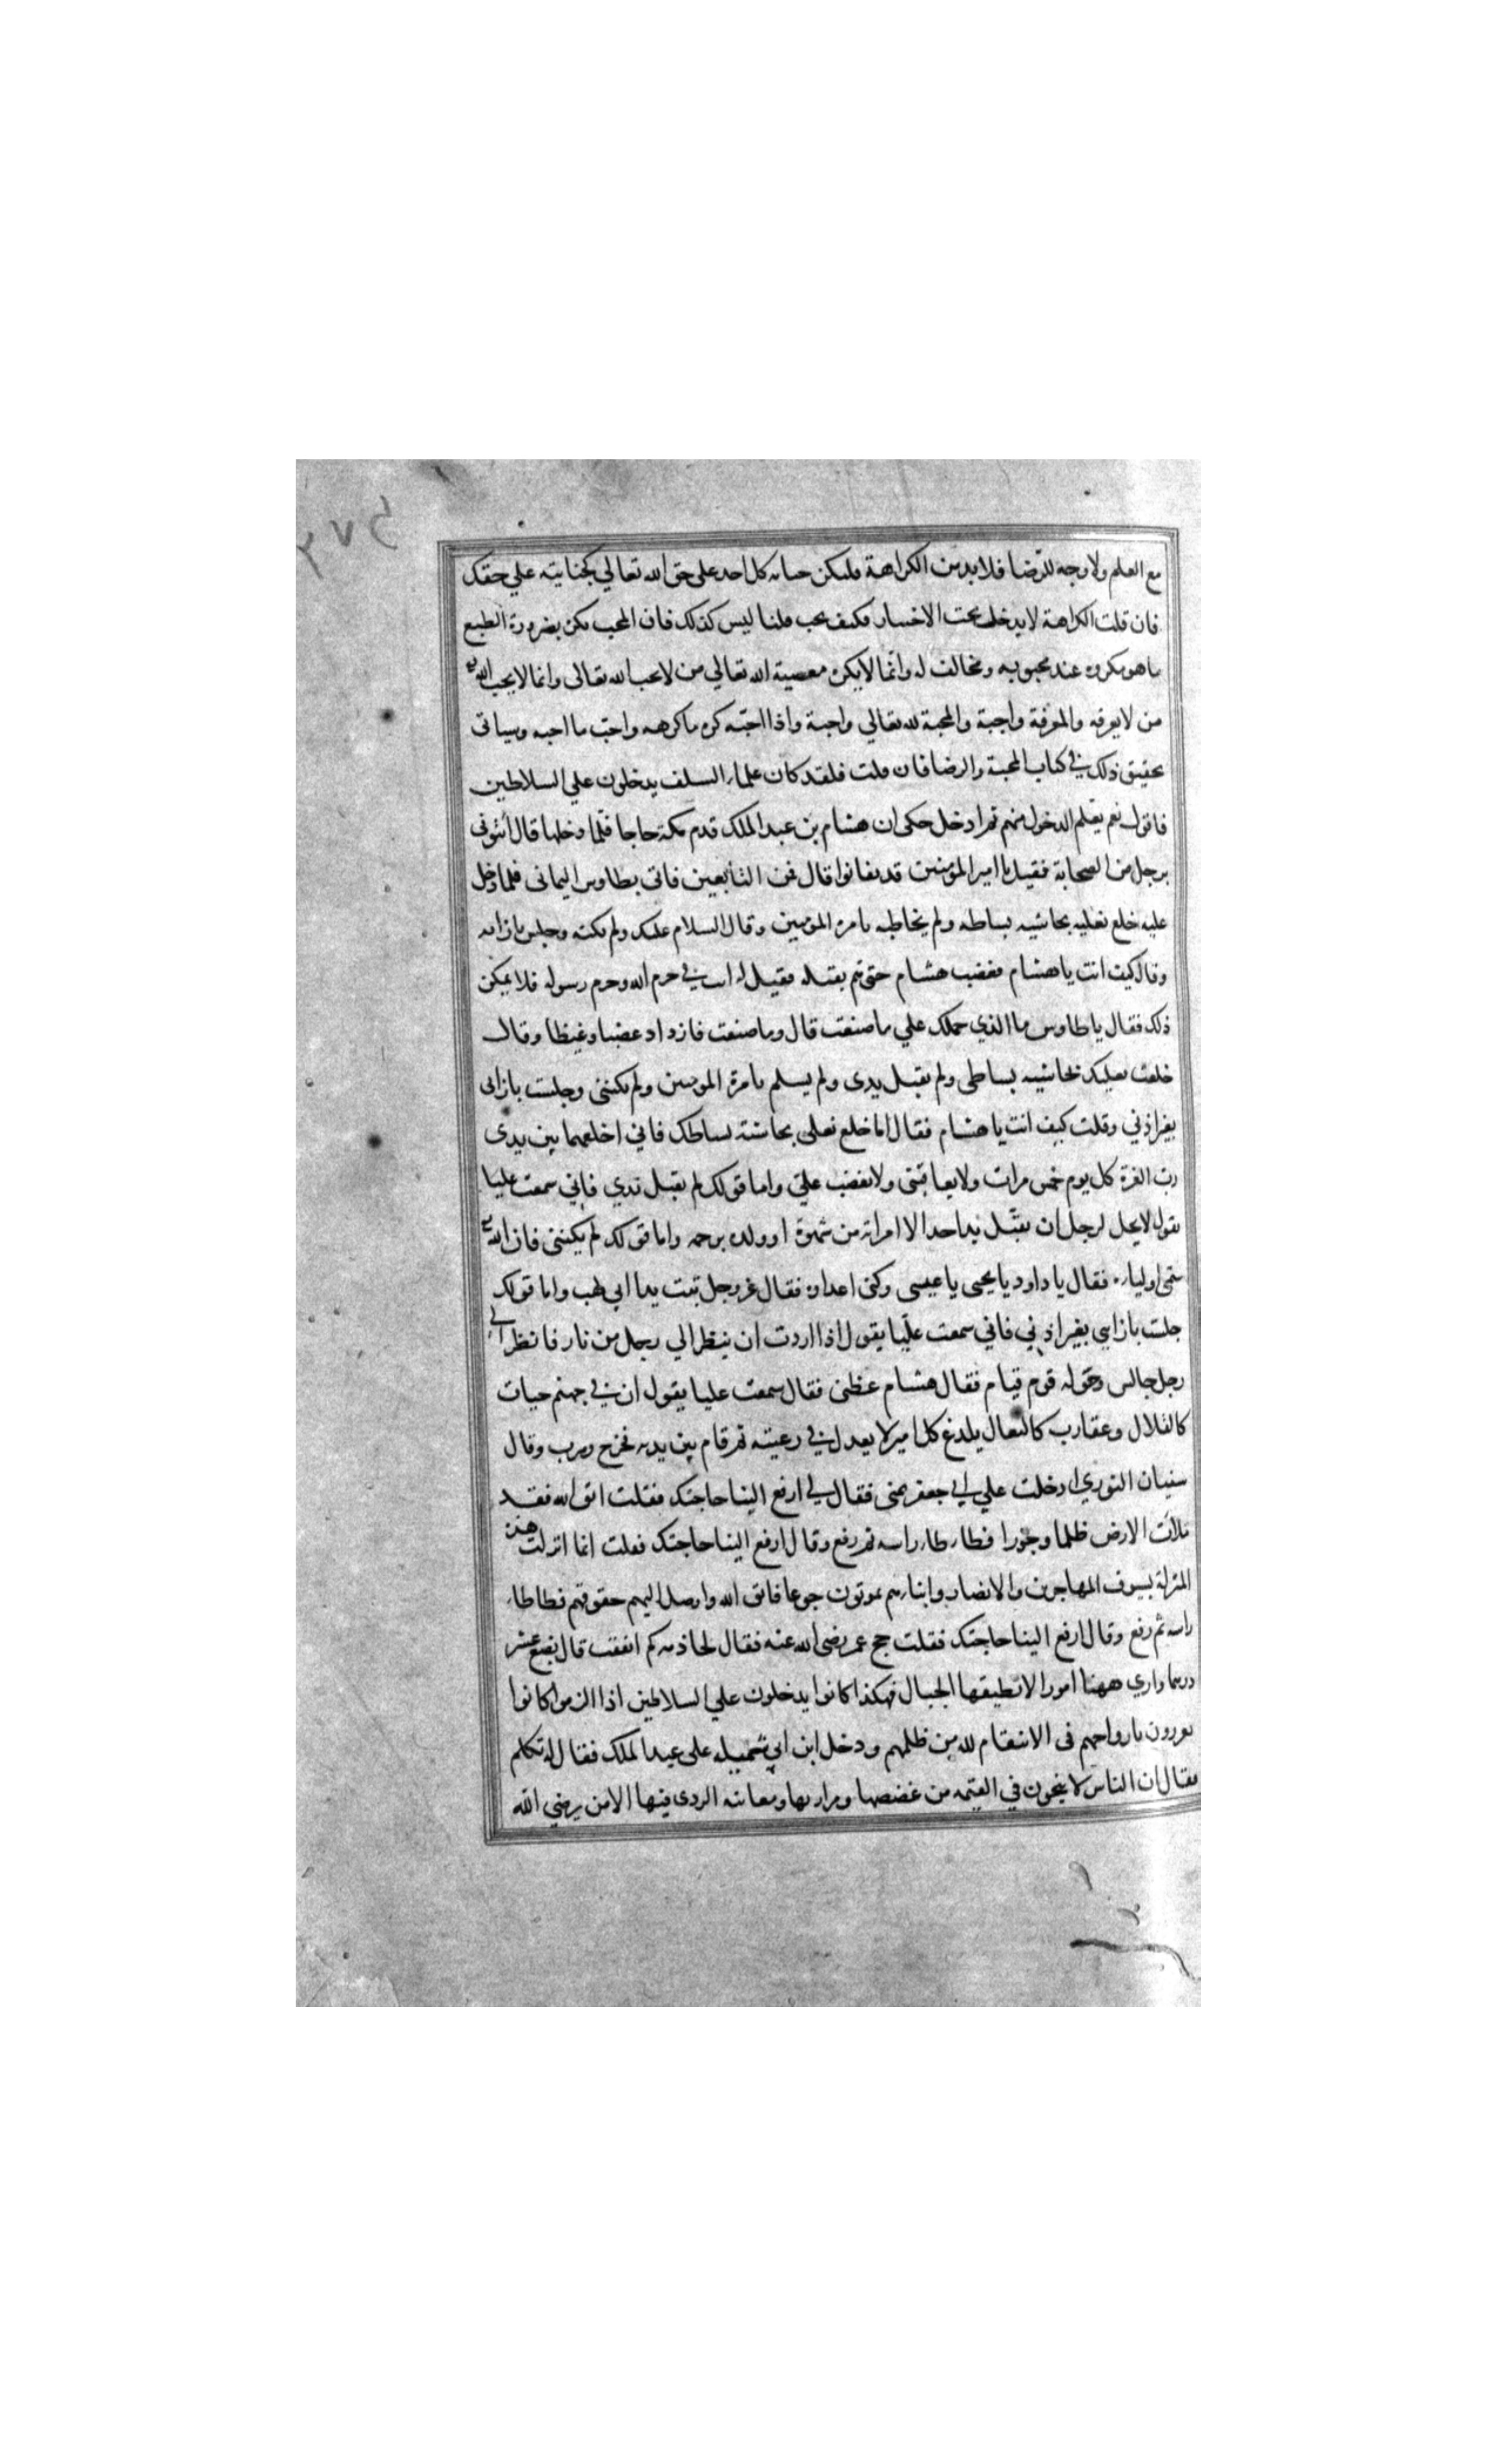 مع العلم ولا وجه للرضا فلا بد من الكراهة فليكن جناية كل احد على حق الله تعالي كجنايته علي حقك
فان قلت الكراهة لا يدخل تحت الاختيار فكيف يجب قلنا ليس كذلك فان المحب يكره بضرورة الطبع
ما هو مكروه عند محبوبه ومخالف له وانما لا يكره معصية الله تعالي من لا يحب الله تعالى وانما لا يحب الله
من لا يعرفه والمعرفة واجبة والمحبة لله تعالي واجبة واذا احبه كره ما كرهه واحب ما احبه وسياتى
تحقيق ذلك في كتاب المحبة والرضا فان قلت فلقد كان علماء السلف يدخلون علي السلاطين
فاقول نعم يعلم الدخول منهم ثم ادخل حكى ان هشام بن عبد الملك قدم مكة حاجا فلما دخلها قال ائتونى
برجل من الصحابة فقيل يا امير المؤمنين قد تفانوا قال فمن التابعين فاتى بطاوس اليمانى فلما دخل
عليه خلع نعليه بحاشيه بساطه ولم يخاطبه بامرة المؤمنين وقال السلام عليك ولم يكنه وجلس بازايه
وقال كيف انت يا هشام فغضب هشام حتى هم بقتله فقيل له انت في حرم الله وحرم رسوله فلا يمكن
ذلك فقال يا طاوس ما الذي حملك علي ما صنعت قال وما صنعت فازداد غضبا وغيظا وقال
خلعت نعليك بحاشيه بساطى ولم يقبل يدى ولم يسلم بامرة المومنين ولم تكننى وجلست بازايى
بغير اذني وقلت كيف انت يا هشام فقال اما خلع نعلى بحاشية بساطك فاني اخلعهما بين يدى
رب العزة كل يوم خمس مرات ولا يعاقبنى ولا يغضب علي واما قولك لم يقبل يدي فاني سمعت عليا
يقول لا يحل لرجل ان يقبل يد احد الا امراته من شهوة او ولده برحمه واما قولك لم يكننى فان الله
سمى اولياءه فقال يا داود يا يحيى يا عيسى وكنى اعداءه فقال عز وجل تبت يدا ابي لهب واما قولك
جلست بازايى بغير اذني فاني سمعت عليا يقول اذا اردت ان ينظر الي رجل من نار فانظر الي
رجل جالس وحوله قوم قيام فقال هشام عظنى فقال سمعت عليا يقول ان في جهنم حيات
كالقلال وعقارب كالبغال يلدغ كل امير لا يعدل في رعيته ثم قام بين يديه فخرج وهرب وقال
سفيان الثوري ادخلت علي ابي جعفر بمنى فقال لي ارفع الينا حاجتك فقلت اتق الله فقد
ملات الارض ظلما وجورا فطاطاء راسه ثم رفع وقال ارفع الينا حاجتك فقلت انما انزلت هذه
المنزلة بسيوف المهاجرين والانصار وابناءهم يموتون جوعا فاتق الله وارصل اليهم حقوقهم فطاطاء
راسه ثم رفع وقال ارفع الينا حاجتك فقلت حج عمر رضى الله عنه فقال لخاذمه كم انفقت قال بضع عشر
درهما واري ههنا امورا لا تطيقها الجبال فهكذا كانوا يدخلون علي السلاطين اذا الزموا كانوا
يغررون بارواحهم فى الانتقام لله من ظلمهم ودخل ابن ابي شميله على عبد الملك فقال له تكلم
فقال ان الناس لا ينجون في القيمة من غصصها ومرارتها ومعاينة الردى فيها الا من رضي الله